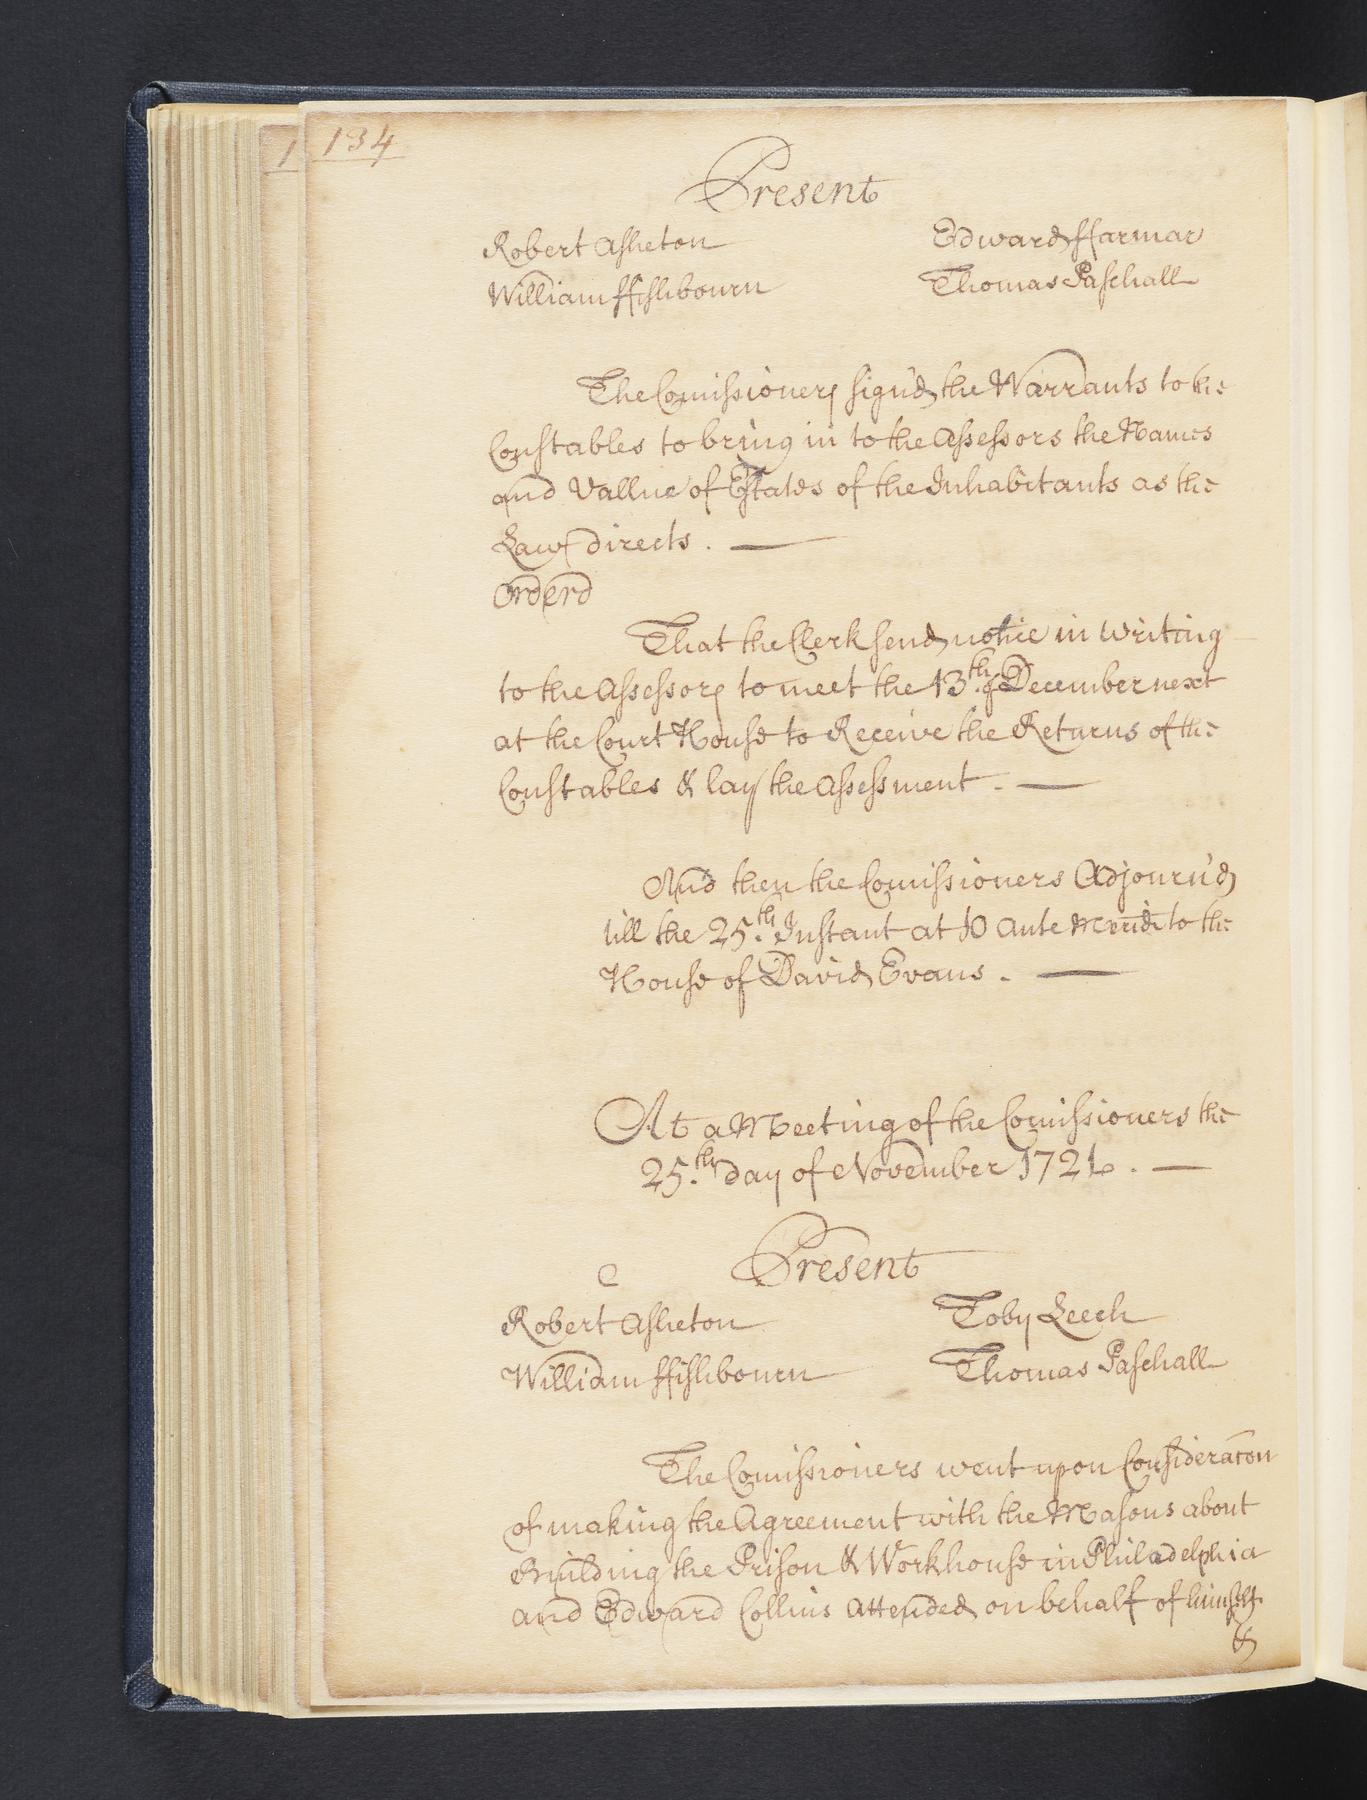 1
134
Present
Robert Asheton Edward ffarmar
William ffishbourn Thomas Paschall
The Comissioners sign'd the Warrants to the
Constables to bring in to the Assessors the Names
and Vallue of Estates of the Inhabitants as the
Law directs. —
Orderd
That the Clerk send notice in Writing
to the Assessors to meet the 13.th of December next
at the Court House to Receive the Returns of the
Constables & lay the Assessment. —
And then the Comissioners Adjourn'd
till the 25.th Instant at 10 Ante Merid: to the
House of David Evans. —
At a Meeting of the Comissioners the
25.th day of November 1721. —
Present
Robert Asheton Toby Leech
William ffishbourn Thomas Paschall
The Comissioners went upon Consideracon
of making the Agreement with the Masons about
Building the Prison & Workhouse in Philadelphia
and Edward Collins Attended on behalf of himself
&